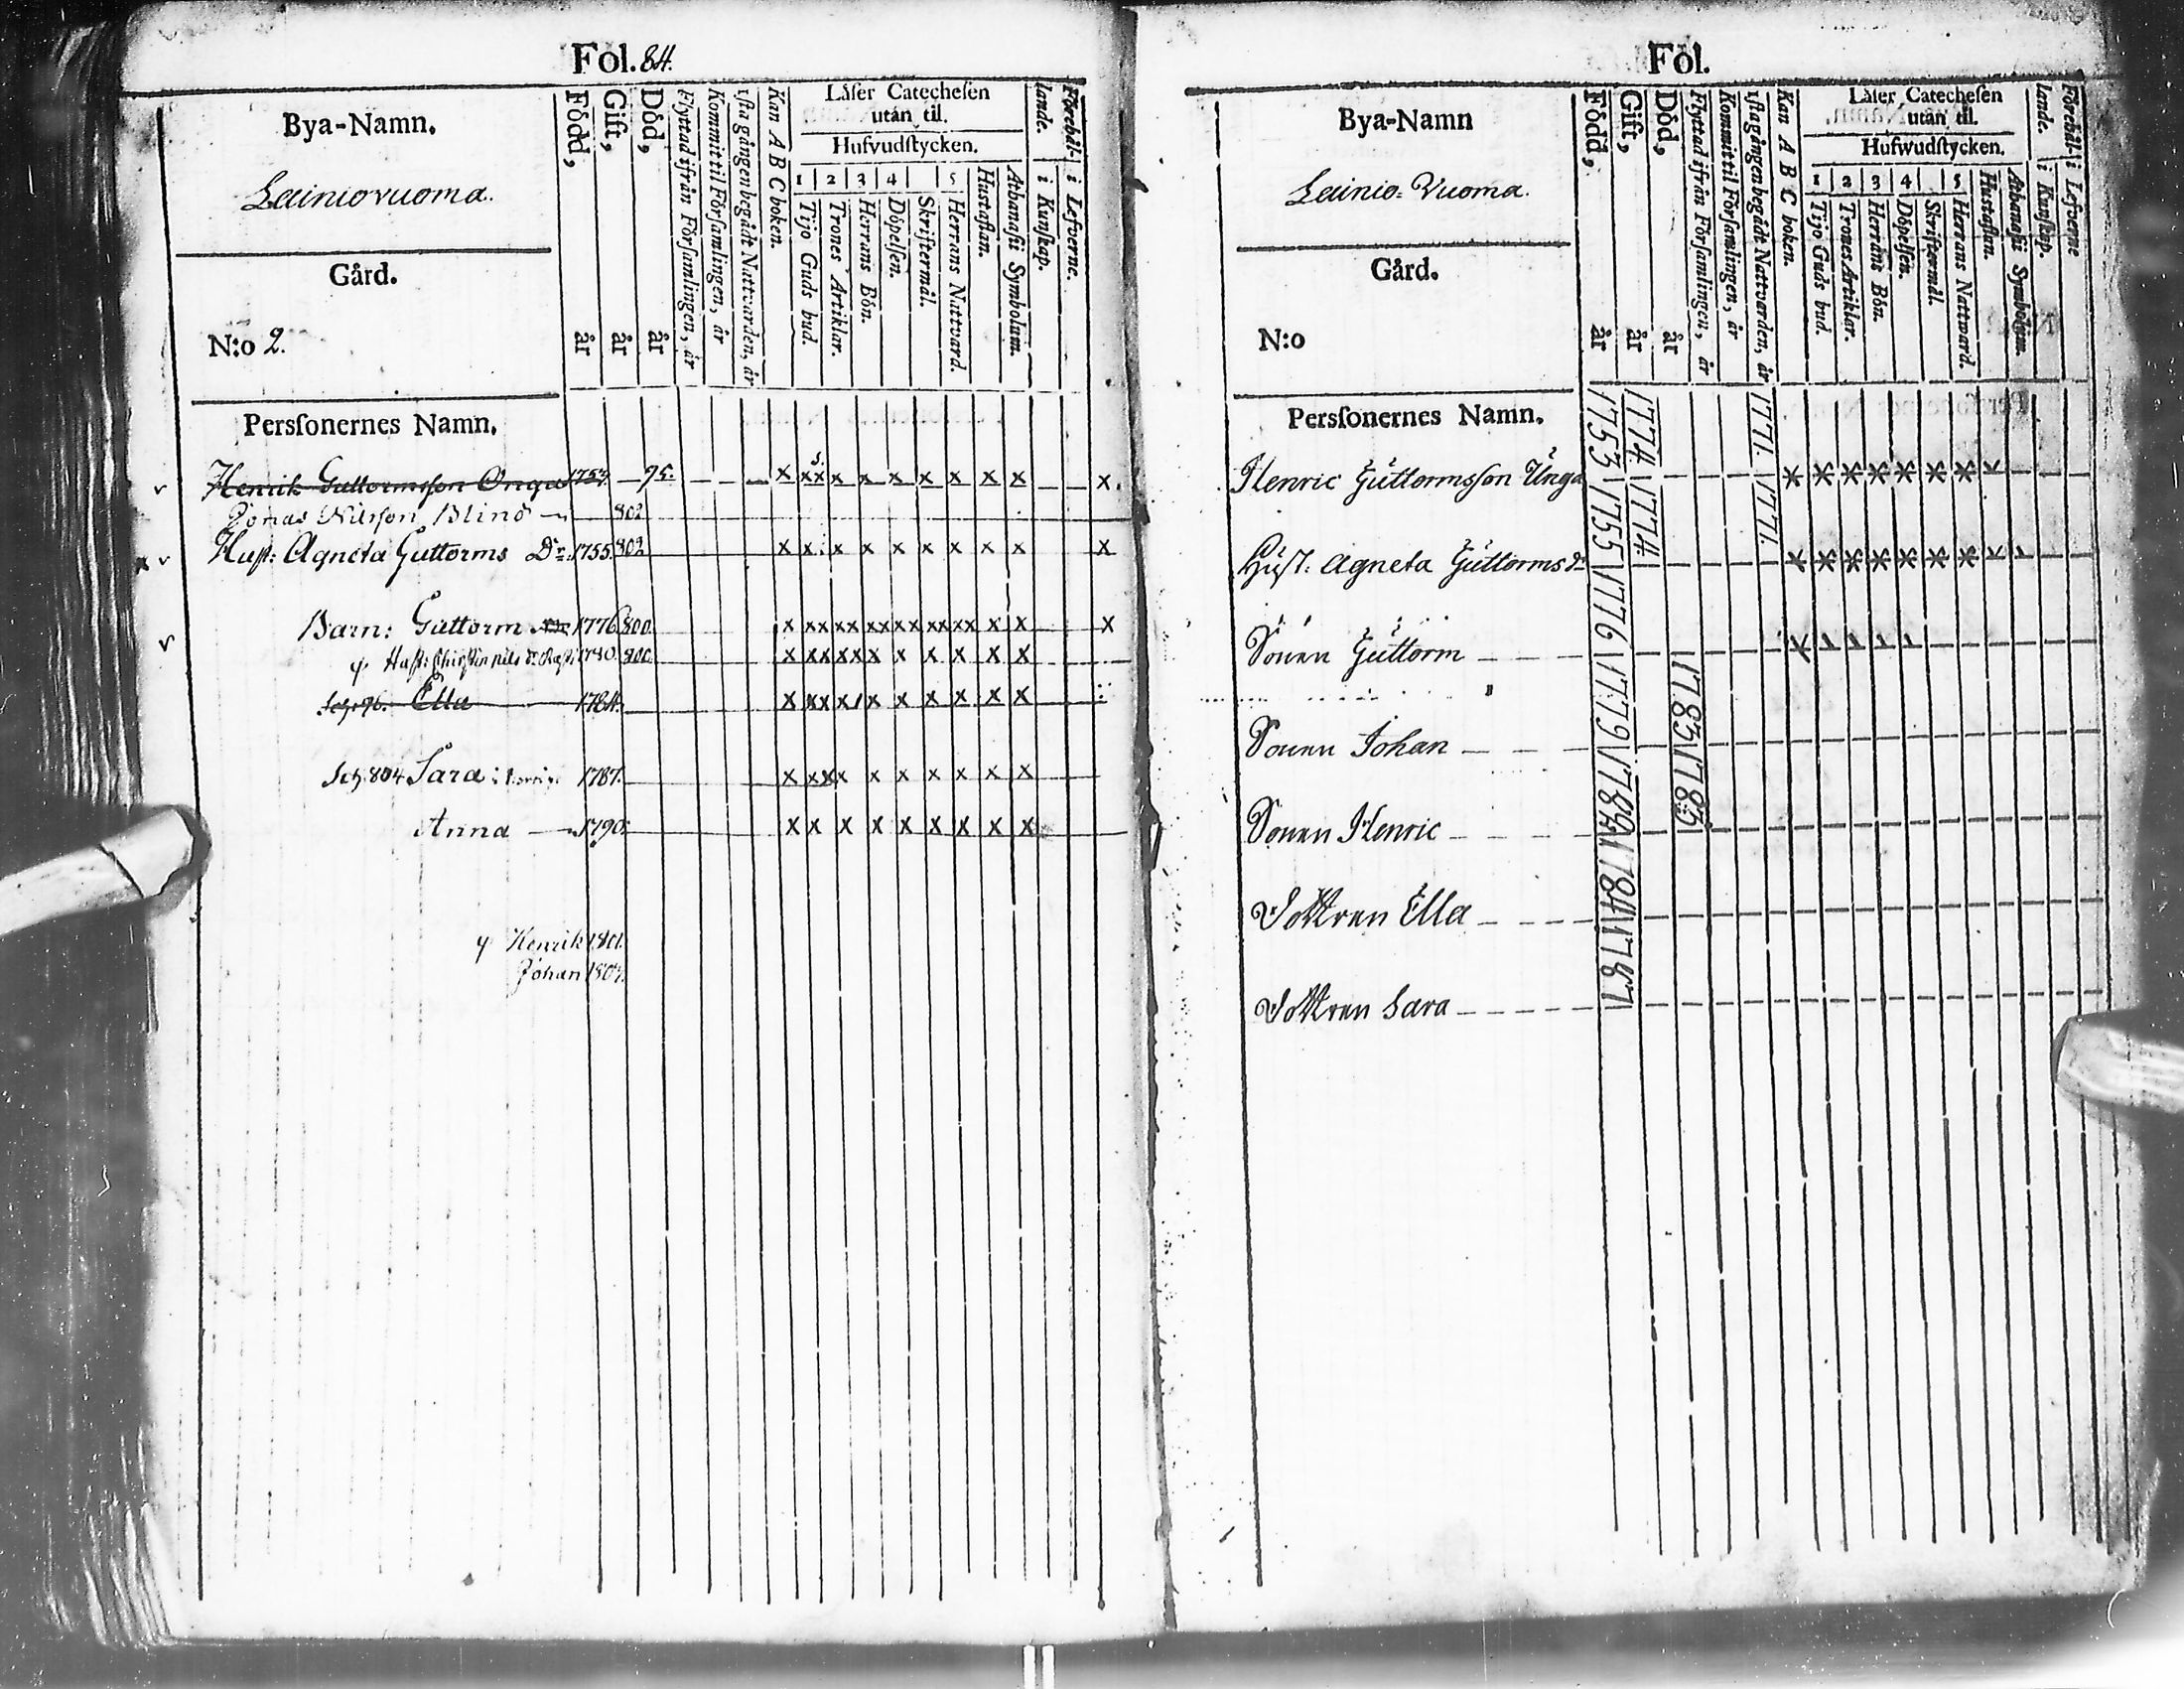 Fol. 84.
Bya-Namn.
Leiniovuoma.
Gård.
N:o 2.
Född, år
Gift, år
Död, år
Flyttad ifrån Förſamlingen, år
Kommit til Förſamlingen, år
1ſta gången begådt Nattvarden, år
Kan A B C boken.
Läſer Catecheſen
utan til.
Hufvudſtycken.
1 2 3 4 5
Tijo Guds bud.
Trones Artiklar.
Herrans Bön.
Döpelſen.
Skriftermål.
Herrans Nattvard.
Huſtaflan.
Athanaſii Symbolum.
Förehål-
lande.
i Kunſkap.
i Lefverne.
Perſonernes Namn.
Henrik Guttormsſon Unga 1753. — 95. — — — x xx x x x x x x x x.
Jonas Nilsson Blind — 802
Huſt: Agneta Guttorms Dr. 1755. 802 x x x x x x x x x x
Barn: Guttorm 1776 800. x xx xx xx xx xx xx x x x
Huſt: Chirſtin Nils dr 1780. 800. x xx xx x x x x x x
Ella 1784. x xx x x x x x x x
Sara 1787. x xx x x x x x x x
Anna — 1790. x x x x x x x x x
Henrik 1801.
Johan 1804.
Fol.
Bya-Namn
Leinio-Vuoma.
Gård.
N:o
Född, år
Gift, år
Död, år
Flyttad ifrån Förſamlingen, år
Kommit til Förſamlingen, år
1ſta gången begådt Nattvarden, år
Kan A B C boken.
Läſer Catecheſen
utan til.
Hufwudſtycken.
1 2 3 4 5
Tijo Guds bud.
Trones Artiklar.
Herrans Bön.
Döpelſen.
Skriftermål.
Herrans Nattward.
Huſtaflan.
Athanaſii Symbolum.
Förehål-
lande.
i Kunſkap.
i Lefverne
Perſonernes Namn.
Henric Guttormsſon Unga 1753 1774 1771.
Huſt: Agneta Guttorms dr 1755 1774. 1771.
Sonen Guttorm 1776
Sonen Johan 1779 1783
Sonen Henric 1782 1783
Dottren Ella 1784
Dottren Sara 1787